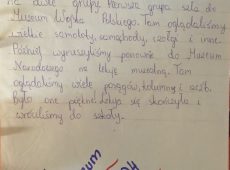 na dwie grupy. Pierwsza grupa szła do
Muzeum Wojska Polskiego. Tam oglądaliśmy
wielkie samoloty, samochody, czołgi i inne.
Później wyruszyliśmy ponownie do Muzeum
Narodowego na lekcję muzealną. Tam
oglądaliśmy wiele posągów, kolumny i ozb.
Było one piękne. Lekcja się skończyła i
wróciliśmy do szkoły.